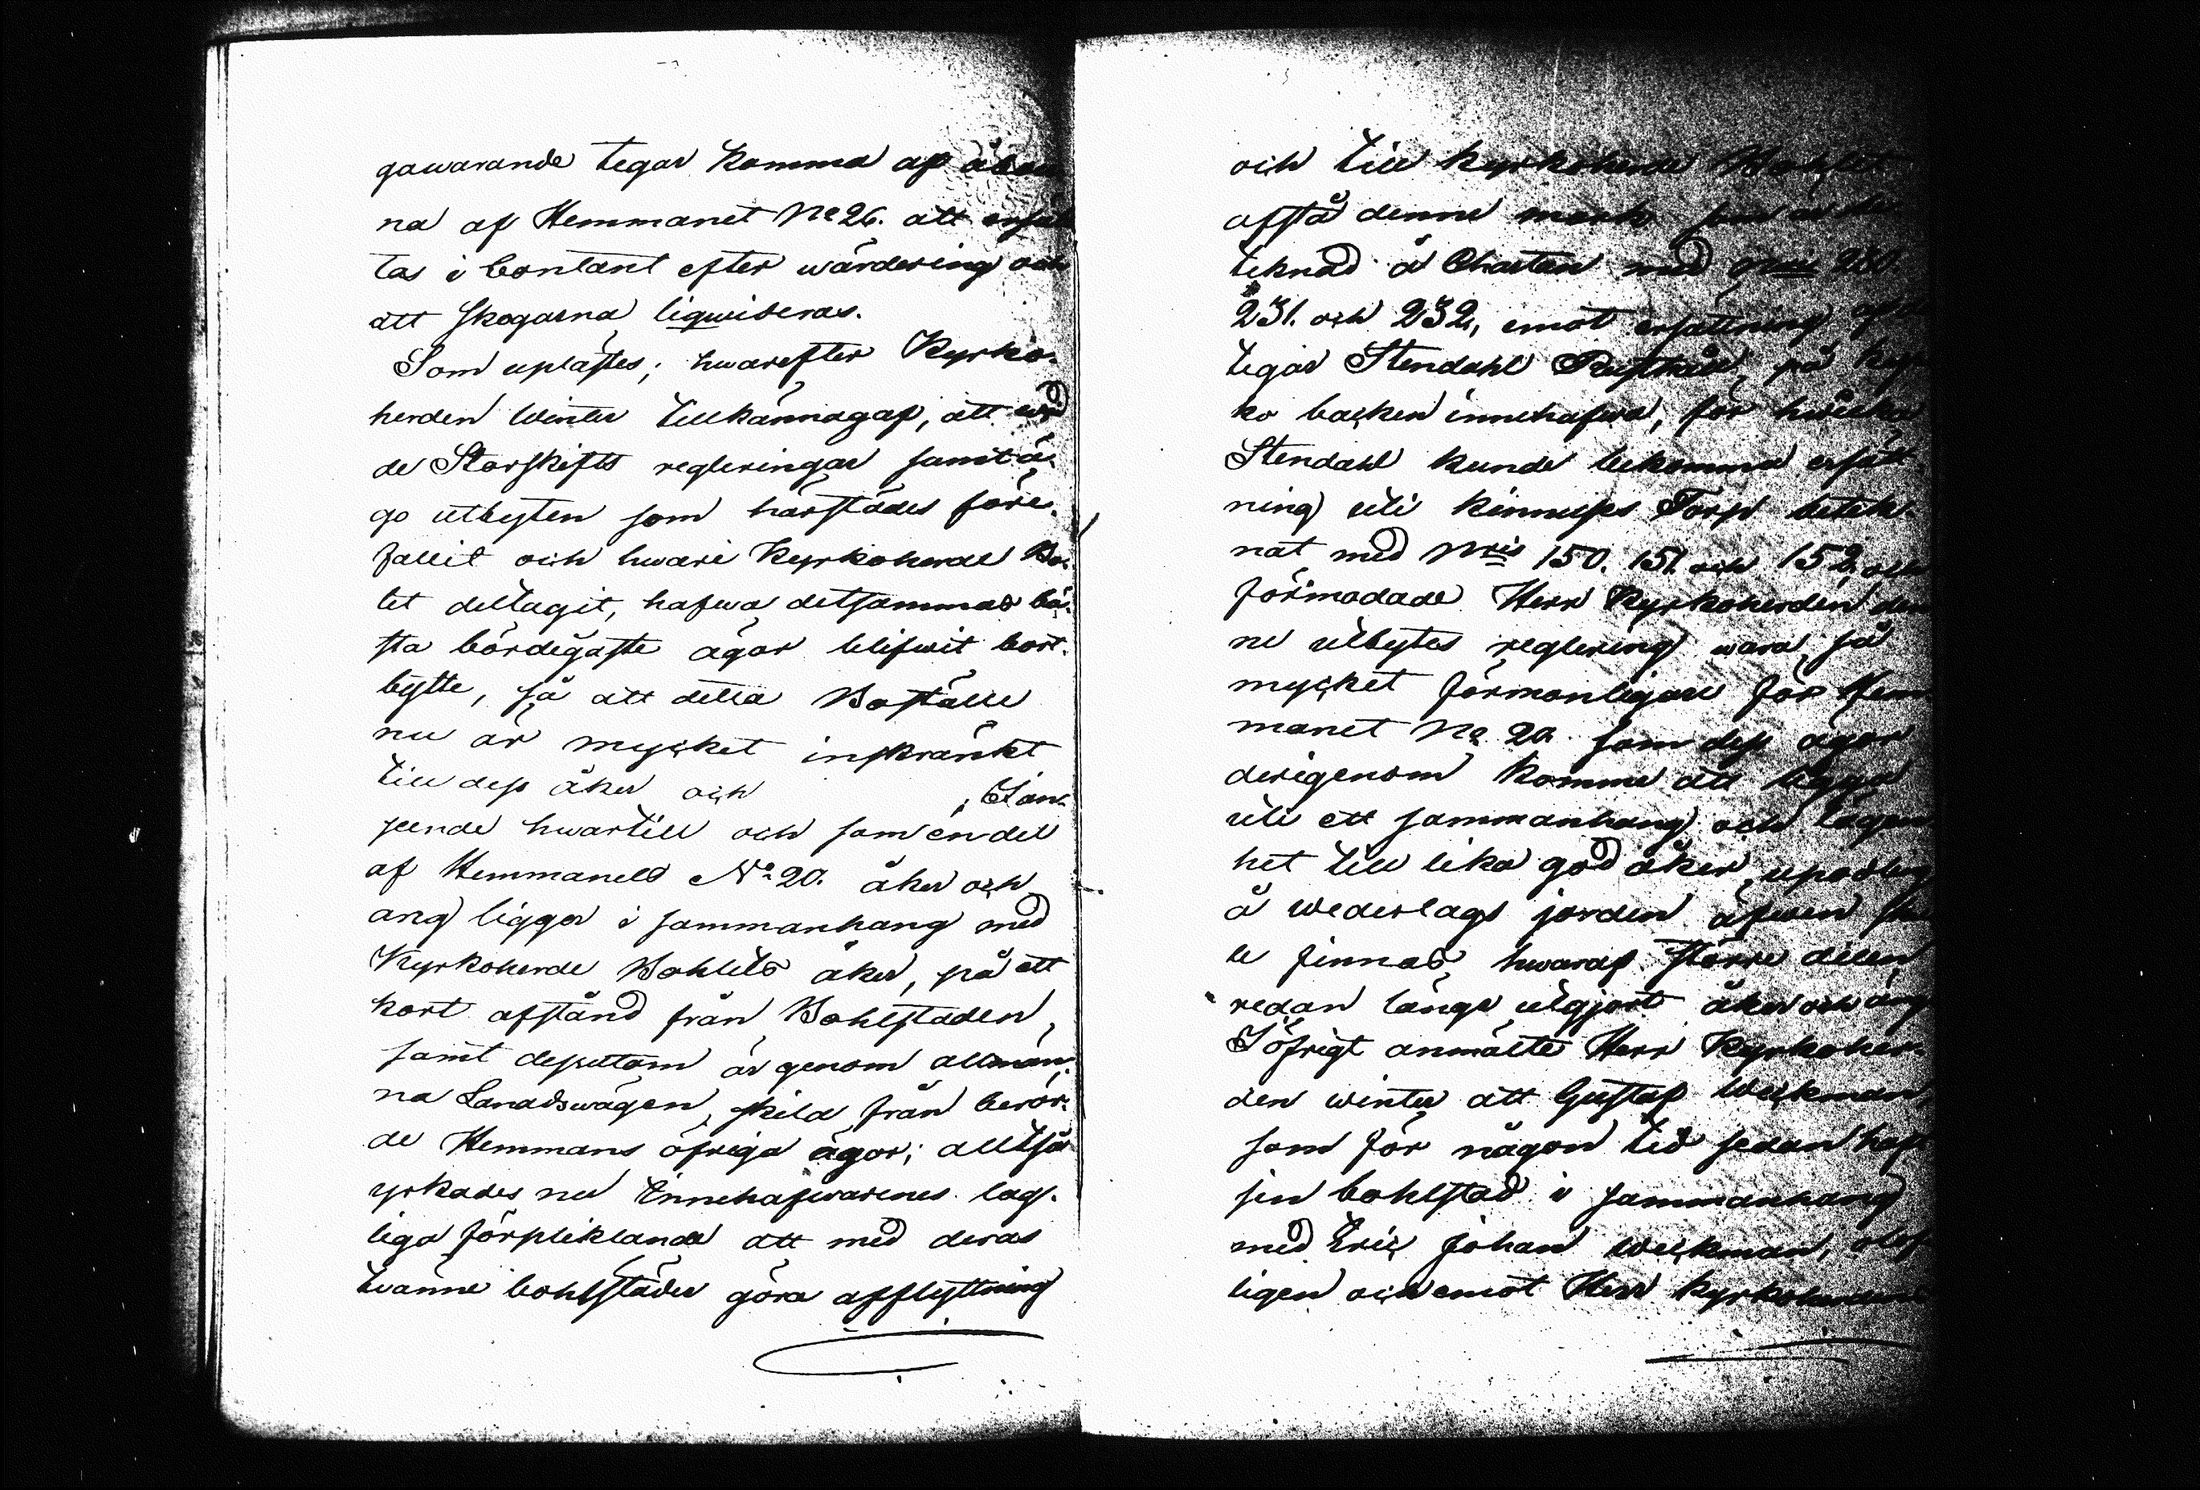 gawarande tegar komma af åboer
na af Hemmanet No 26. att ersät
tas i Contant efter wärdering och
att skogarna liqwideras.
Som uplästes; hwarefter Kyrko-
herden Winter tillkännagaf, att wid
de Storskifts regleringar samt ä-
go utbyten som härstädes före-
fallit och hwari Kyrkoherde Bo-
let deltagit, hafwa detsammas bä-
sta bördigaste ägor blifwit bort-
bytte, så att detta Boställe
nu är mycket inskränkt
till dess åker och
seende hwartill och som en del
af Hemmanets No 20. åker och
äng ligger i sammanhang med
Kyrkoherde Bohlets åker, på ett
kort afstånd från Bohlstaden,
samt dessutom är genom allmän-
na Landswägen, skild från berör-
de Hemmans öfriga ägor; alltså
yrkades nu Innehafwarenes lag-
liga förpliktande att med deras
twänne bohlstäder göra afflyttning
och till Kyrkoherde
afstå denne mark som är
teknad å Chartan med 230.
231. och 232, emot ersättning af de
tegar Stendahl Rusthåll, på Kyr-
ko backen innehafwa, för hwilka
Stendahl kunde bekomma ersätt-
ning uti Torp betek-
nat med Nris 150. 151. och 152, och
förmodade Herr Kyrkoherden den
ne utbytes reglering wara så
mycket förmonligare för Hem
manet No 20. som dess ägor
derigenom komme att ligga
uti ett sammanhang och lägen
het till lika god åker upodling
å wederlags jorden äfwen skul
le finnas, hwaraf större delen
redan länge utgjort åker och äng
I öfrigt anmälte Herr Kyrkoher-
den Winter att Gustaf Weckman,
som för någon tid sedan haft
sin bohlstad i sammanhang
med Eric Johan Weckman, olof
ligen och emot Herr Kyrkoherdens